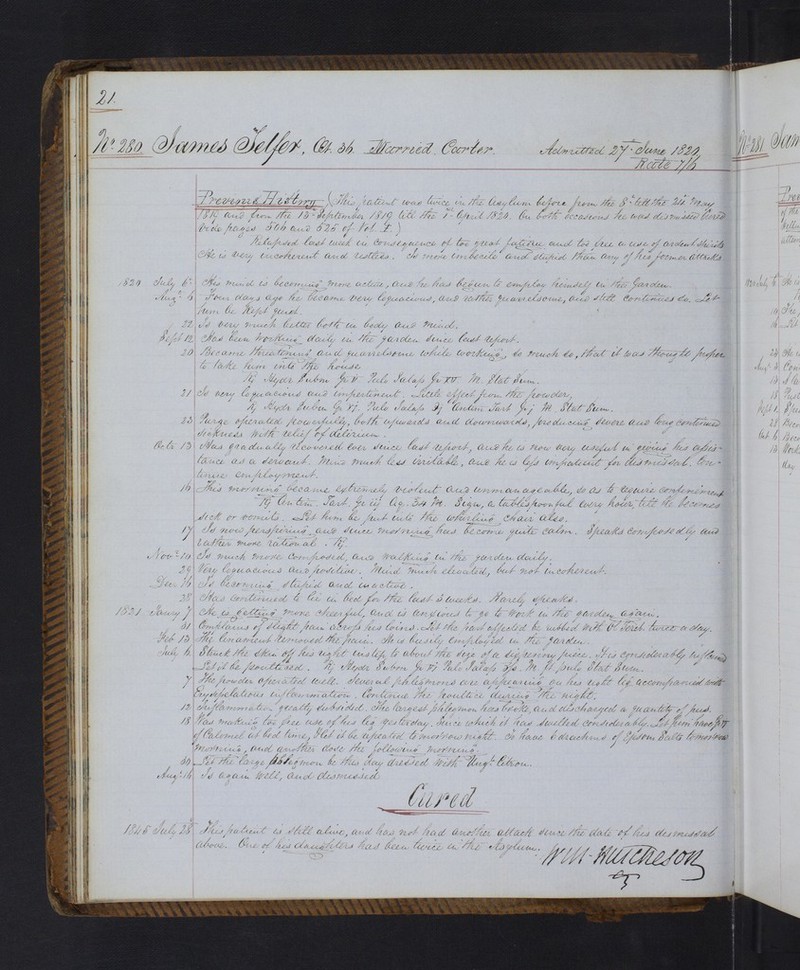 21.
No. 280 James Telfer, Æt. 36 Married. Carter. Admitted 27th June 1820
Rate 7/6
Previous History (This patient was twice in the Asylum before from the 8th till the 24th May
1819 and from the 14th September 1819 till the 1st April 1820. On both occasions he was dismissed cured
vide pages 506 and 525 of Vol. I.)
Relapsed last week in consequence of too great fatigue and too free a use of ardent spirits
He is very incoherent and restless. Is more imbecile and stupid than any of his former attacks
1820 July 6 His mind is becoming more active, and he has begun to employ himself in the Garden.
Augt. 6 Four days ago he became very loquacious, and rather quarrelsome, and still continues so. Let
him be kept quiet.
22 Is very much better both in body and mind.
Sept 12 Has been working daily in the garden since last report.
20 Became threatening and quarrelsome while working, so much so, that it was thought proper
to take him into the house
Pulv Jalap M. Stat Sum.
21 Is very loquacious and impertinent. Little effect from the powder,
Pulv Jalap Antim Tart M Stat Sum.
23 Purge operated powerfully, both upwards and downwards, producing severe and long continued
sickness with relief of delirium.
Octr. 13 Has gradually recovered ever since last report, and he is now very useful in giving his assis-
tance as a servant. Mind much less irritable, and he is less impatient for dismissal. Con-
tinue employment.
16 This morning became extremely violent and unmanageable, so as to require confinement
Antim. Tart. Aq. M. Sign, a tablespoonful every hour till he becomes
sick or vomits. Let him be put into the whirling chair also.
17 Is now perspiring, and since morning has become quite calm. Speaks composedly and
rather more rational.
Novr. 10 Is much more composed, and walking in the garden daily.
29 Very loquacious and positive. Mind much elevated, but not incoherent.
Decr. 16 Is becoming stupid and inactive.
28 Has continued to lie in bed for the last 2 weeks. Rarely speaks.
1821 Janry 7 He is getting more cheerful, and is anxious to go to work in the garden again.
31 Complains of slight pain across his loins. Let the part affected be rubbed with twice a day.
Feb 13 The linament removed the pain. He is busily employed in the garden.
July 6 Struck the skin off his right instep to about the size of a sixpenny piece. It is considerably inflamed
Let it be poulticed. Pulv Jalap M. ft. pulv Stat Sum.
7 The powder operated well. Several phlegmons are appearing on his right leg accompanied with
Erysipelatous inflammation. Continue the poultice during the night.
12 Inflammation greatly subsided. The largest phlegmon has broke, and discharged a quantity of pus.
18 Was making too free use of his leg yesterday. Since which it has swelled considerably. Let him have
of Calomel at bed time, & let it be repeated tomorrow night. To have 6 drachms of Epsom Salts tomorrow
morning, and another dose the following morning.
30 Let the large phlegmon be this day dressed with Ungt. Citron.
Augt. 16 Is again well, and dismissed
Cured
1845 July 28 This patient is still alive, and has not had another attack since the date of his dismissal
above. One of his daughters has been twice in the Asylum.
Wm. Hutcheson
No. 281